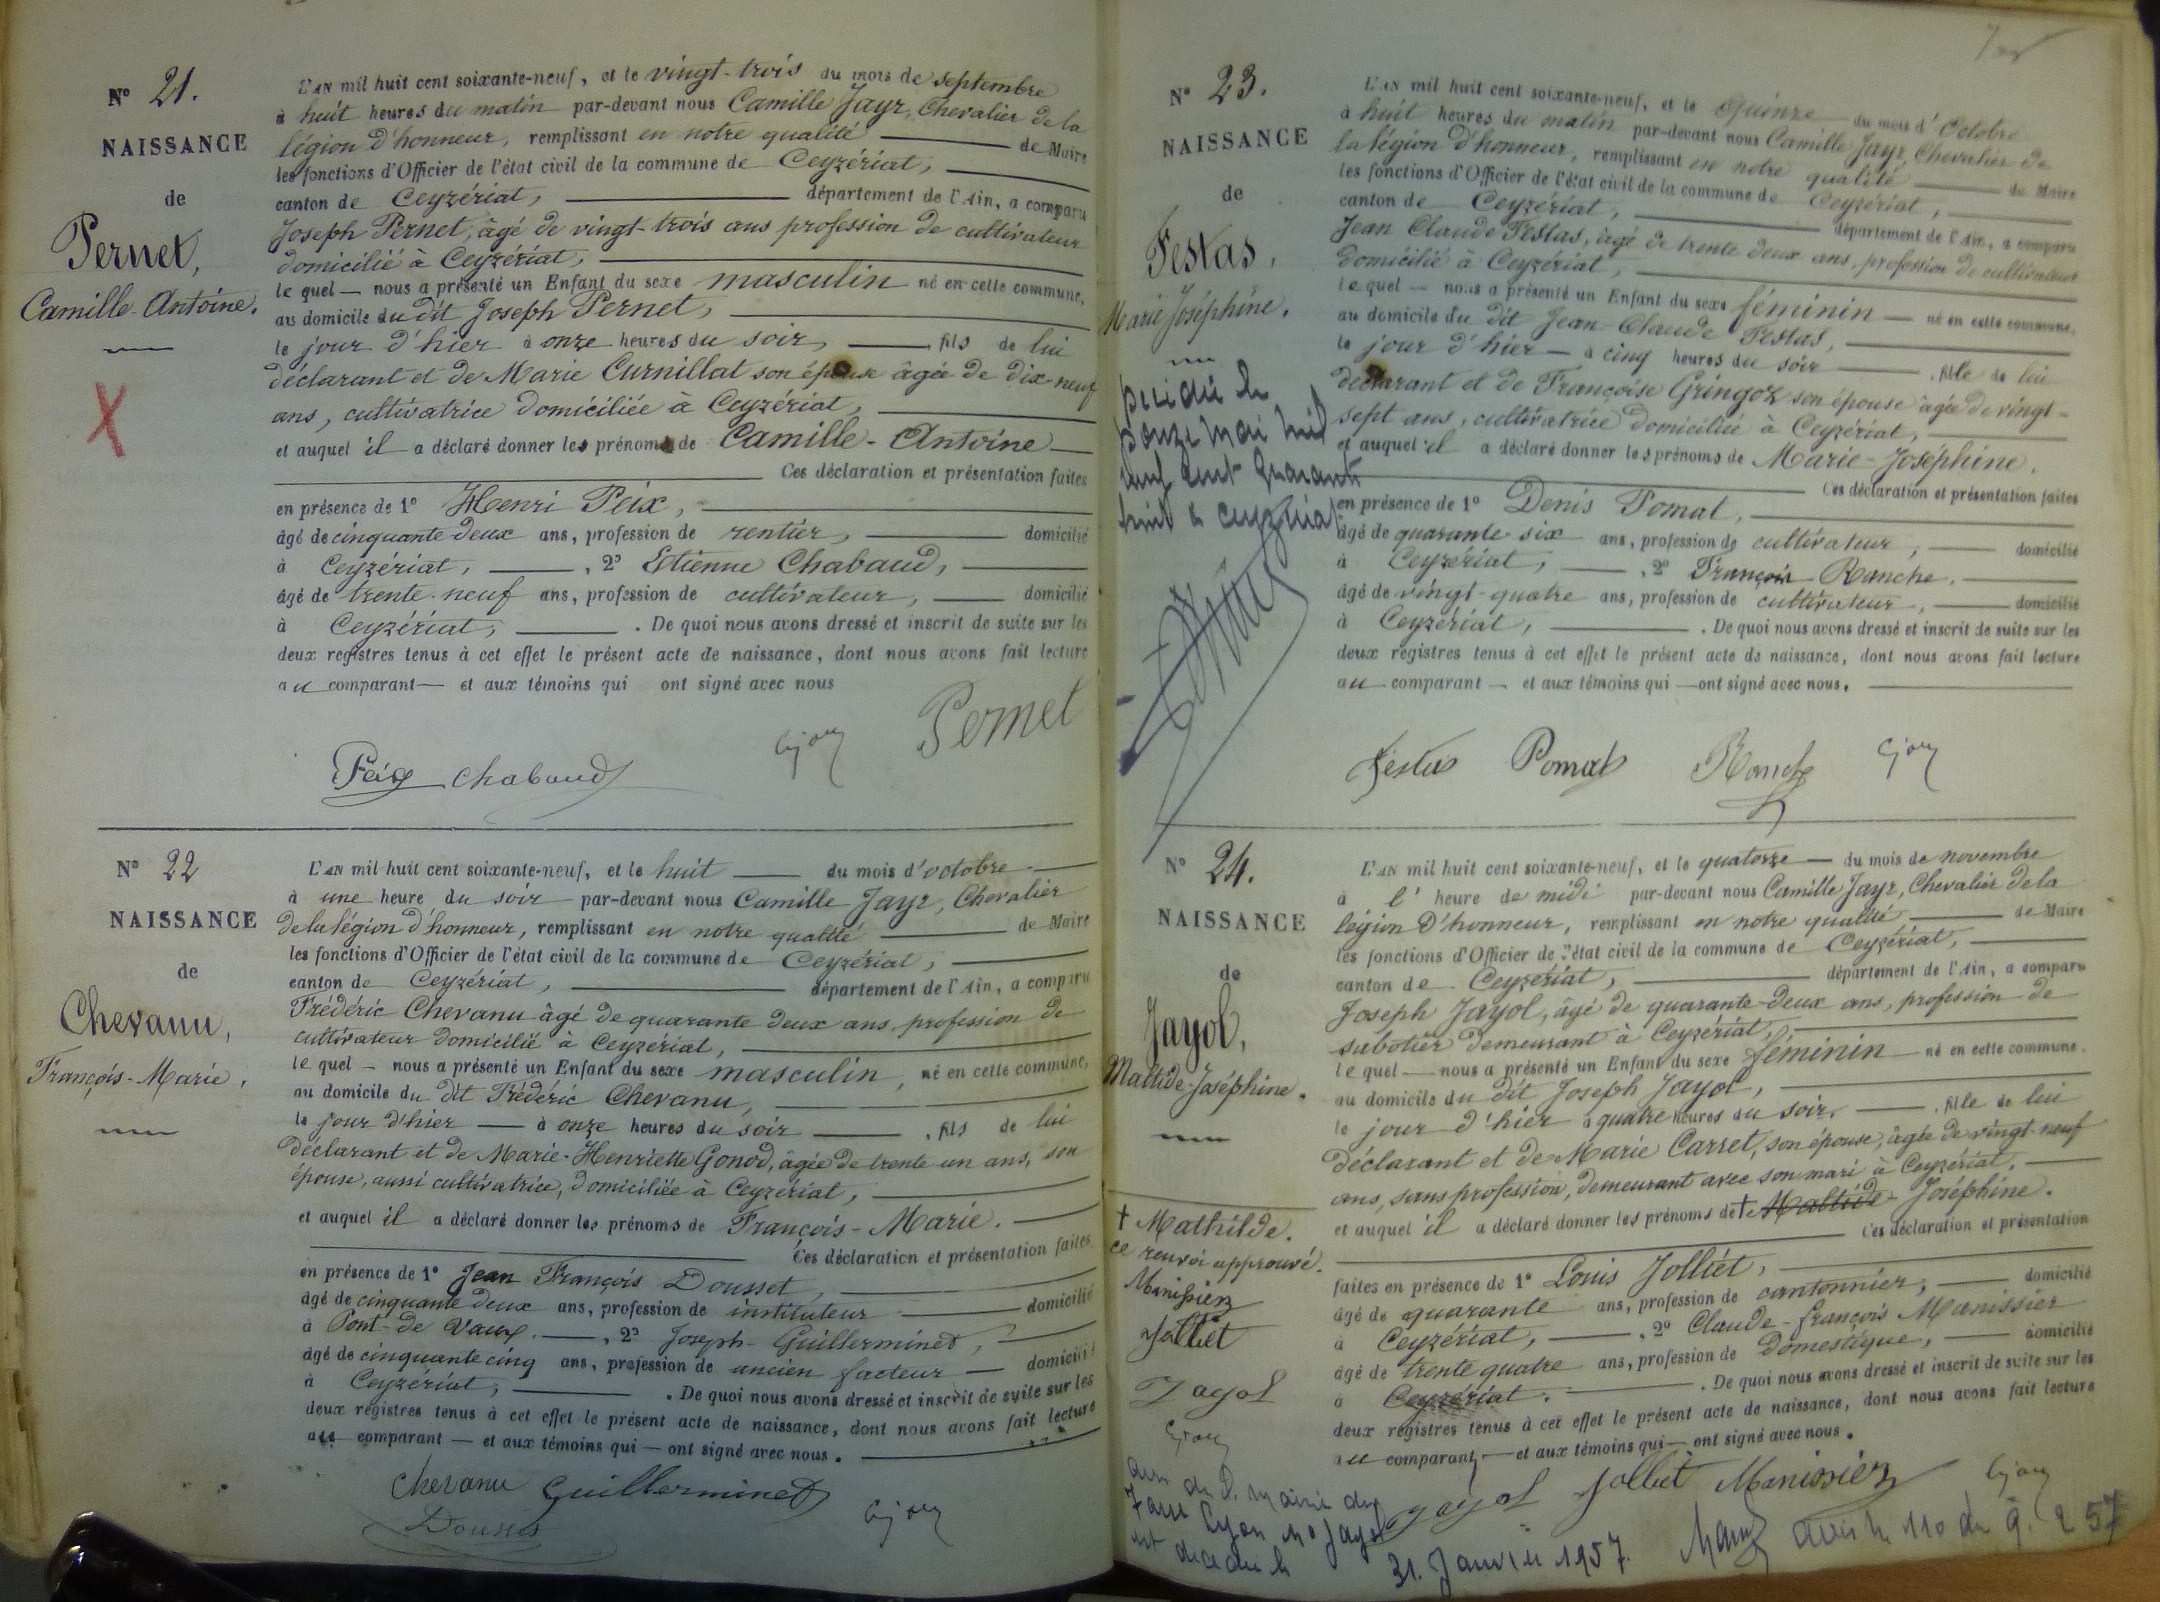 N° 21.
NAISSANCE
de
Pernet,
Camille-Antoine.
L'AN mil huit cent soixante-neuf, et le vingt-trois du mois de septembre
à huit heures du matin par-devant nous Camille Jayr, Chevalier de la
légion d'honneur, remplissant en notre qualité de Maire
les fonctions d'Officier de l'état civil de la commune de Ceyzériat,
canton de Ceyzériat, département de l'Ain, a comparu
Joseph Pernet, âgé de vingt-trois ans profession de cultivateur
domicilié à Ceyzériat,
le quel nous a présenté un Enfant du sexe masculin né en cette commune,
au domicile du dit Joseph Pernet,
le jour d'hier à onze heures du soir, fils de lui
déclarant et de Marie Curnillat son épouse âgée de dix-neuf
ans, cultivatrice domiciliée à Ceyzériat,
et auquel il a déclaré donner les prénoms de Camille-Antoine
Ces déclaration et présentation faites
en présence de 1° Henri Peix,
âgé de cinquante-deux ans, profession de rentier, domicilié
à Ceyzériat, 2° Etienne Chabaud,
âgé de trente-neuf ans, profession de cultivateur, domicilié
à Ceyzériat, . De quoi nous avons dressé et inscrit de suite sur les
deux registres tenus à cet effet le présent acte de naissance, dont nous avons fait lecture
au comparant et aux témoins qui ont signé avec nous
Pernet
Peix Chabaud
N° 22
NAISSANCE
de
Chevanu,
François-Marie,
L'AN mil huit cent soixante-neuf, et le huit du mois d'octobre
à une heure du soir par-devant nous Camille Jayr, Chevalier
de la légion d'honneur, remplissant en notre qualité de Maire
les fonctions d'Officier de l'état civil de la commune de Ceyzériat,
canton de Ceyzériat, département de l'Ain, a comparu
Frédéric Chevanu âgé de quarante deux ans, profession de
cultivateur domicilié à Ceyzériat,
le quel nous a présenté un Enfant du sexe masculin, né en cette commune,
au domicile du dit Frédéric Chevanu,
le jour d'hier à onze heures du soir, fils de lui
déclarant et de Marie-Henriette Gonod, âgée de trente un ans, son
épouse, aussi cultivatrice, domiciliée à Ceyzériat,
et auquel il a déclaré donner les prénoms de François-Marie.
Ces déclaration et présentation faites
en présence de 1° Jean François Dousset,
âgé de cinquante deux ans, profession de instituteur domicilié
à Pont-de Vaux. , 2° Joseph Guillerminet,
âgé de cinquante cinq ans, profession de ancien facteur domicilié
à Ceyzériat, . De quoi nous avons dressé et inscrit de suite sur les
deux registres tenus à cet effet le présent acte de naissance, dont nous avons fait lecture
au comparant et aux témoins qui ont signé avec nous.
Chevanu Guillerminet
N° 23.
NAISSANCE
de
Festas,
Marie Joséphine.
décédée le
onze Mai mil
neuf cent quarante
huit à Ceyzériat
L'AN mil huit cent soixante-neuf, et le Quinze du mois d'Octobre
à huit heures du matin par-devant nous Camille Jayr, Chevalier de
la légion d'honneur, remplissant en notre qualité de Maire
les fonctions d'Officier de l'état civil de la commune de Ceyzériat,
canton de Ceyzériat, département de l'Ain, a comparu
Jean Claude Festas, âgé de trente deux ans, profession de cultivateur
domicilié à Ceyzériat,
le quel nous a présenté un Enfant du sexe féminin né en cette commune,
au domicile du dit Jean-Claude Festas,
le jour d'hier à cinq heures du soir , fille de lui
déclarant et de Françoise Gringoz son épouse âgée de vingt-
sept ans, cultivatrice domiciliée à Ceyzériat,
et auquel il a déclaré donner les prénoms de Marie-Joséphine.
Ces déclaration et présentation faites
en présence de 1° Denis Pomat,
âgé de quarante six ans, profession de cultivateur, domicilié
à Ceyzériat, , 2° François Ranche,
âgé de vingt-quatre ans, profession de cultivateur, domicilié
à Ceyzériat, . De quoi nous avons dressé et inscrit de suite sur les
deux registres tenus à cet effet le présent acte de naissance, dont nous avons fait lecture
au comparant et aux témoins qui ont signé avec nous.
Festas Pomat Ranche
N° 24.
NAISSANCE
de
Jayol,
Mathide-Joséphine.
† Mathilde.
ce renvoi approuvé.
Manissier
Jolliet
Jayol
L'AN mil huit cent soixante-neuf, et le quatorze du mois de novembre
à l' heure de midi par-devant nous Camille Jayr, Chevalier de la
légion d'honneur, remplissant en notre qualité de Maire
les fonctions d'Officier de l'état civil de la commune de Ceyzériat,
canton de Ceyzériat, département de l'Ain, a comparu
Joseph Jayol, âgé de quarante-deux ans, profession de
sabotier demeurant à Ceyzériat,
le quel nous a présenté un Enfant du sexe féminin né en cette commune.
au domicile du dit Joseph Jayol,
le jour d'hier à quatre heures du soir, , fille de lui
déclarant et de Marie Carret, son épouse, âgée de vingt-neuf
ans, sans profession, demeurant avec son mari à Ceyzériat,
et auquel il a déclaré donner les prénoms de † Joséphine.
Ces déclaration et présentation
faites en présence de 1° Louis Jolliet,
âgé de quarante ans, profession de cantonnier, domicilié
à Ceyzériat, , 2° Claude-françois Manissier
âgé de trente quatre ans, profession de domestique, domicilié
à Ceyzériat. . De quoi nous avons dressé et inscrit de suite sur les
deux registres tenus à cet effet le présent acte de naissance, dont nous avons fait lecture
au comparant, et aux témoins qui ont signé avec nous.
Jayol Jolliet Manissier
Lyon Jayol
est décédée le 31. Janvier 1957.